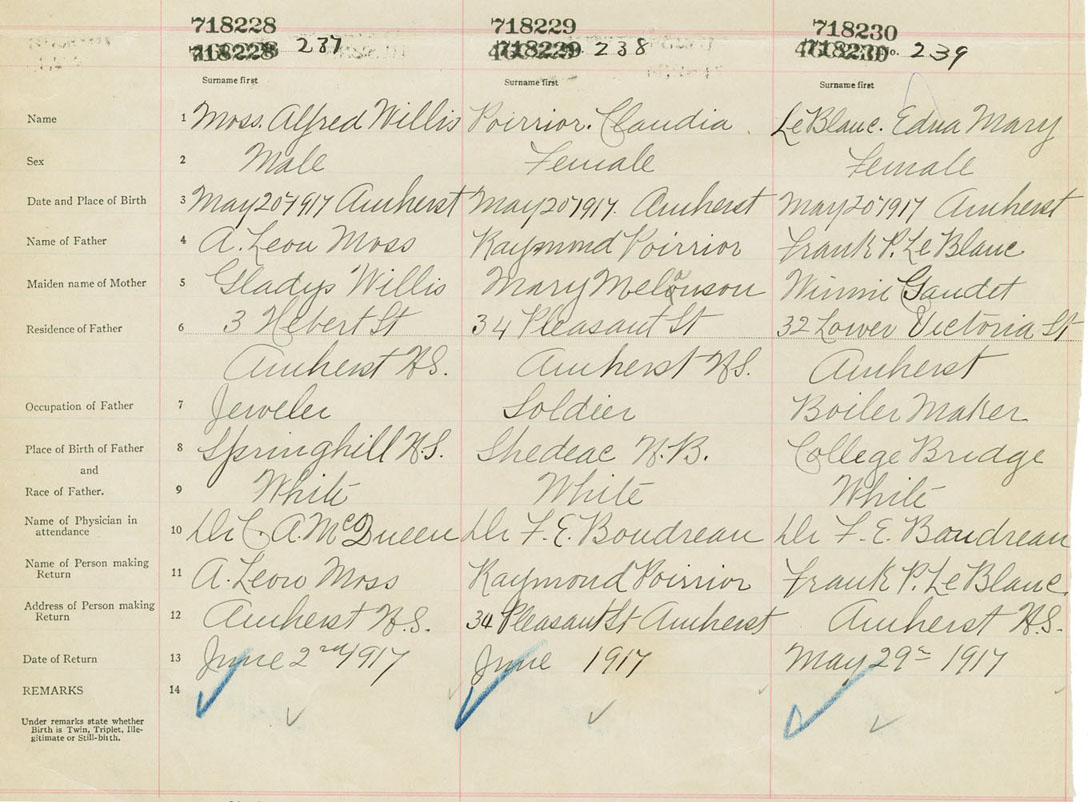 718228 718229 718230
718228 237 718229 238 718230 No. 239
Surname first Surname first Surname first
Name 1 Moss. Alfred Willis Poirrior. Claudia LeBlanc. Edna Mary
Sex 2 Male Female Female
Date and Place of Birth 3 May 20 1917 Amherst May 20 1917. Amherst May 20 1917 Amherst
Name of Father 4 A. Leon Moss Raymond Poirrior Frank P. LeBlanc
Maiden name of Mother 5 Gladys Willis Mary Melanson Winnie Gaudet
Residence of Father 6 3 Hebert St 34 Pleasant St 32 Lower Victoria St
Amherst N.S. Amherst N.S. Amherst
Occupation of Father 7 Jeweler Soldier Boiler Maker
Place of Birth of Father 8 Springhill N.S. Shedeac N.B. College Bridge
and
Race of Father. 9 White White White
Name of Physician in
attendance 10 Dr C. A. McQueen Dr F. E. Boudreau Dr F. E. Boudreau
Name of Person making
Return 11 A. Leon Moss Raymond Poirrior Frank P. LeBlanc
Address of Person making
Return 12 Amherst N.S. 34 Pleasant St Amherst Amherst N.S.
Date of Return 13 June 2nd 1917 June 1917 May 29th 1917
REMARKS 14
Under remarks state whether
Birth is Twin, Triplet, Ille-
gitimate or Still-birth.